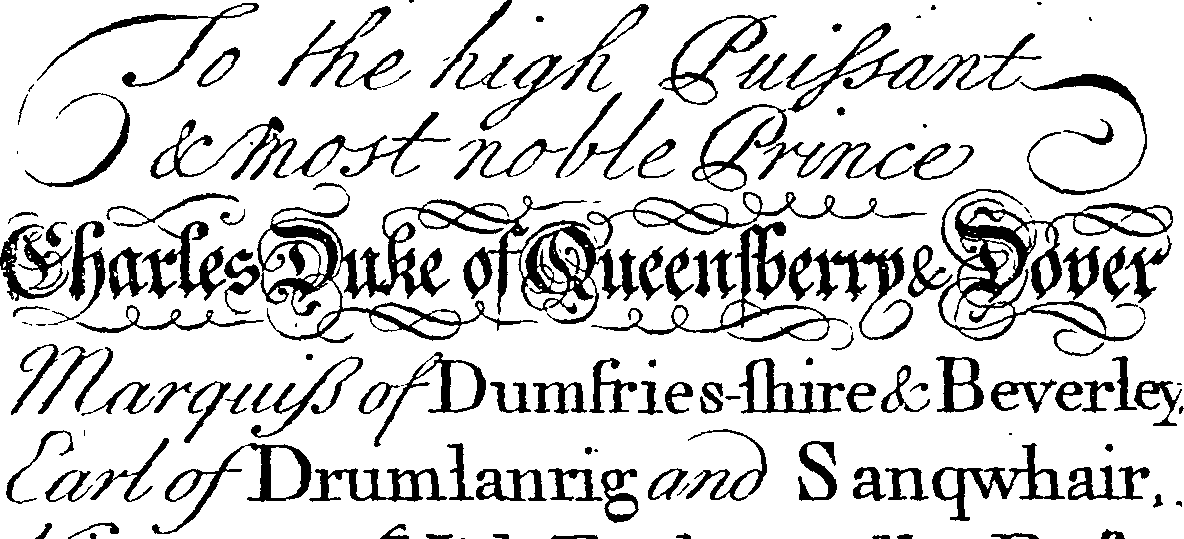 To the high Puiſsant
& most noble Prince
Charles Duke of Queenſberry & Dover
Marquiſs of Dumfries-ſhire & Beverley,
Earl of Drumlanrig and Sanqwhair,